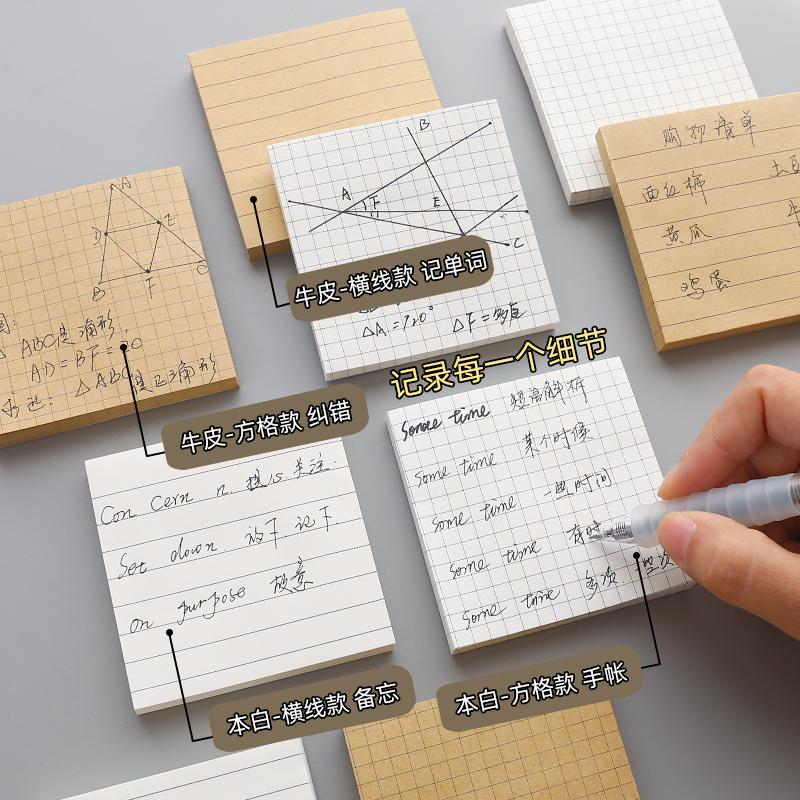 购物清单
西红柿
土豆
黄瓜
鸡蛋
B
A
F
E
C
△A=120°
牛皮-横线款 记单词
A
D
E
B
F
C
△ABC是三角形
牛皮-方格款 纠错
记录每一个细节
some time 短语解析
some time 某个时候
some time 一些时间
some time 有时
some time 多次
Con cern n. 担心 关注.
Set down 放下 记下.
on purpose 故意
本白-横线款 备忘
本白-方格款 手帐